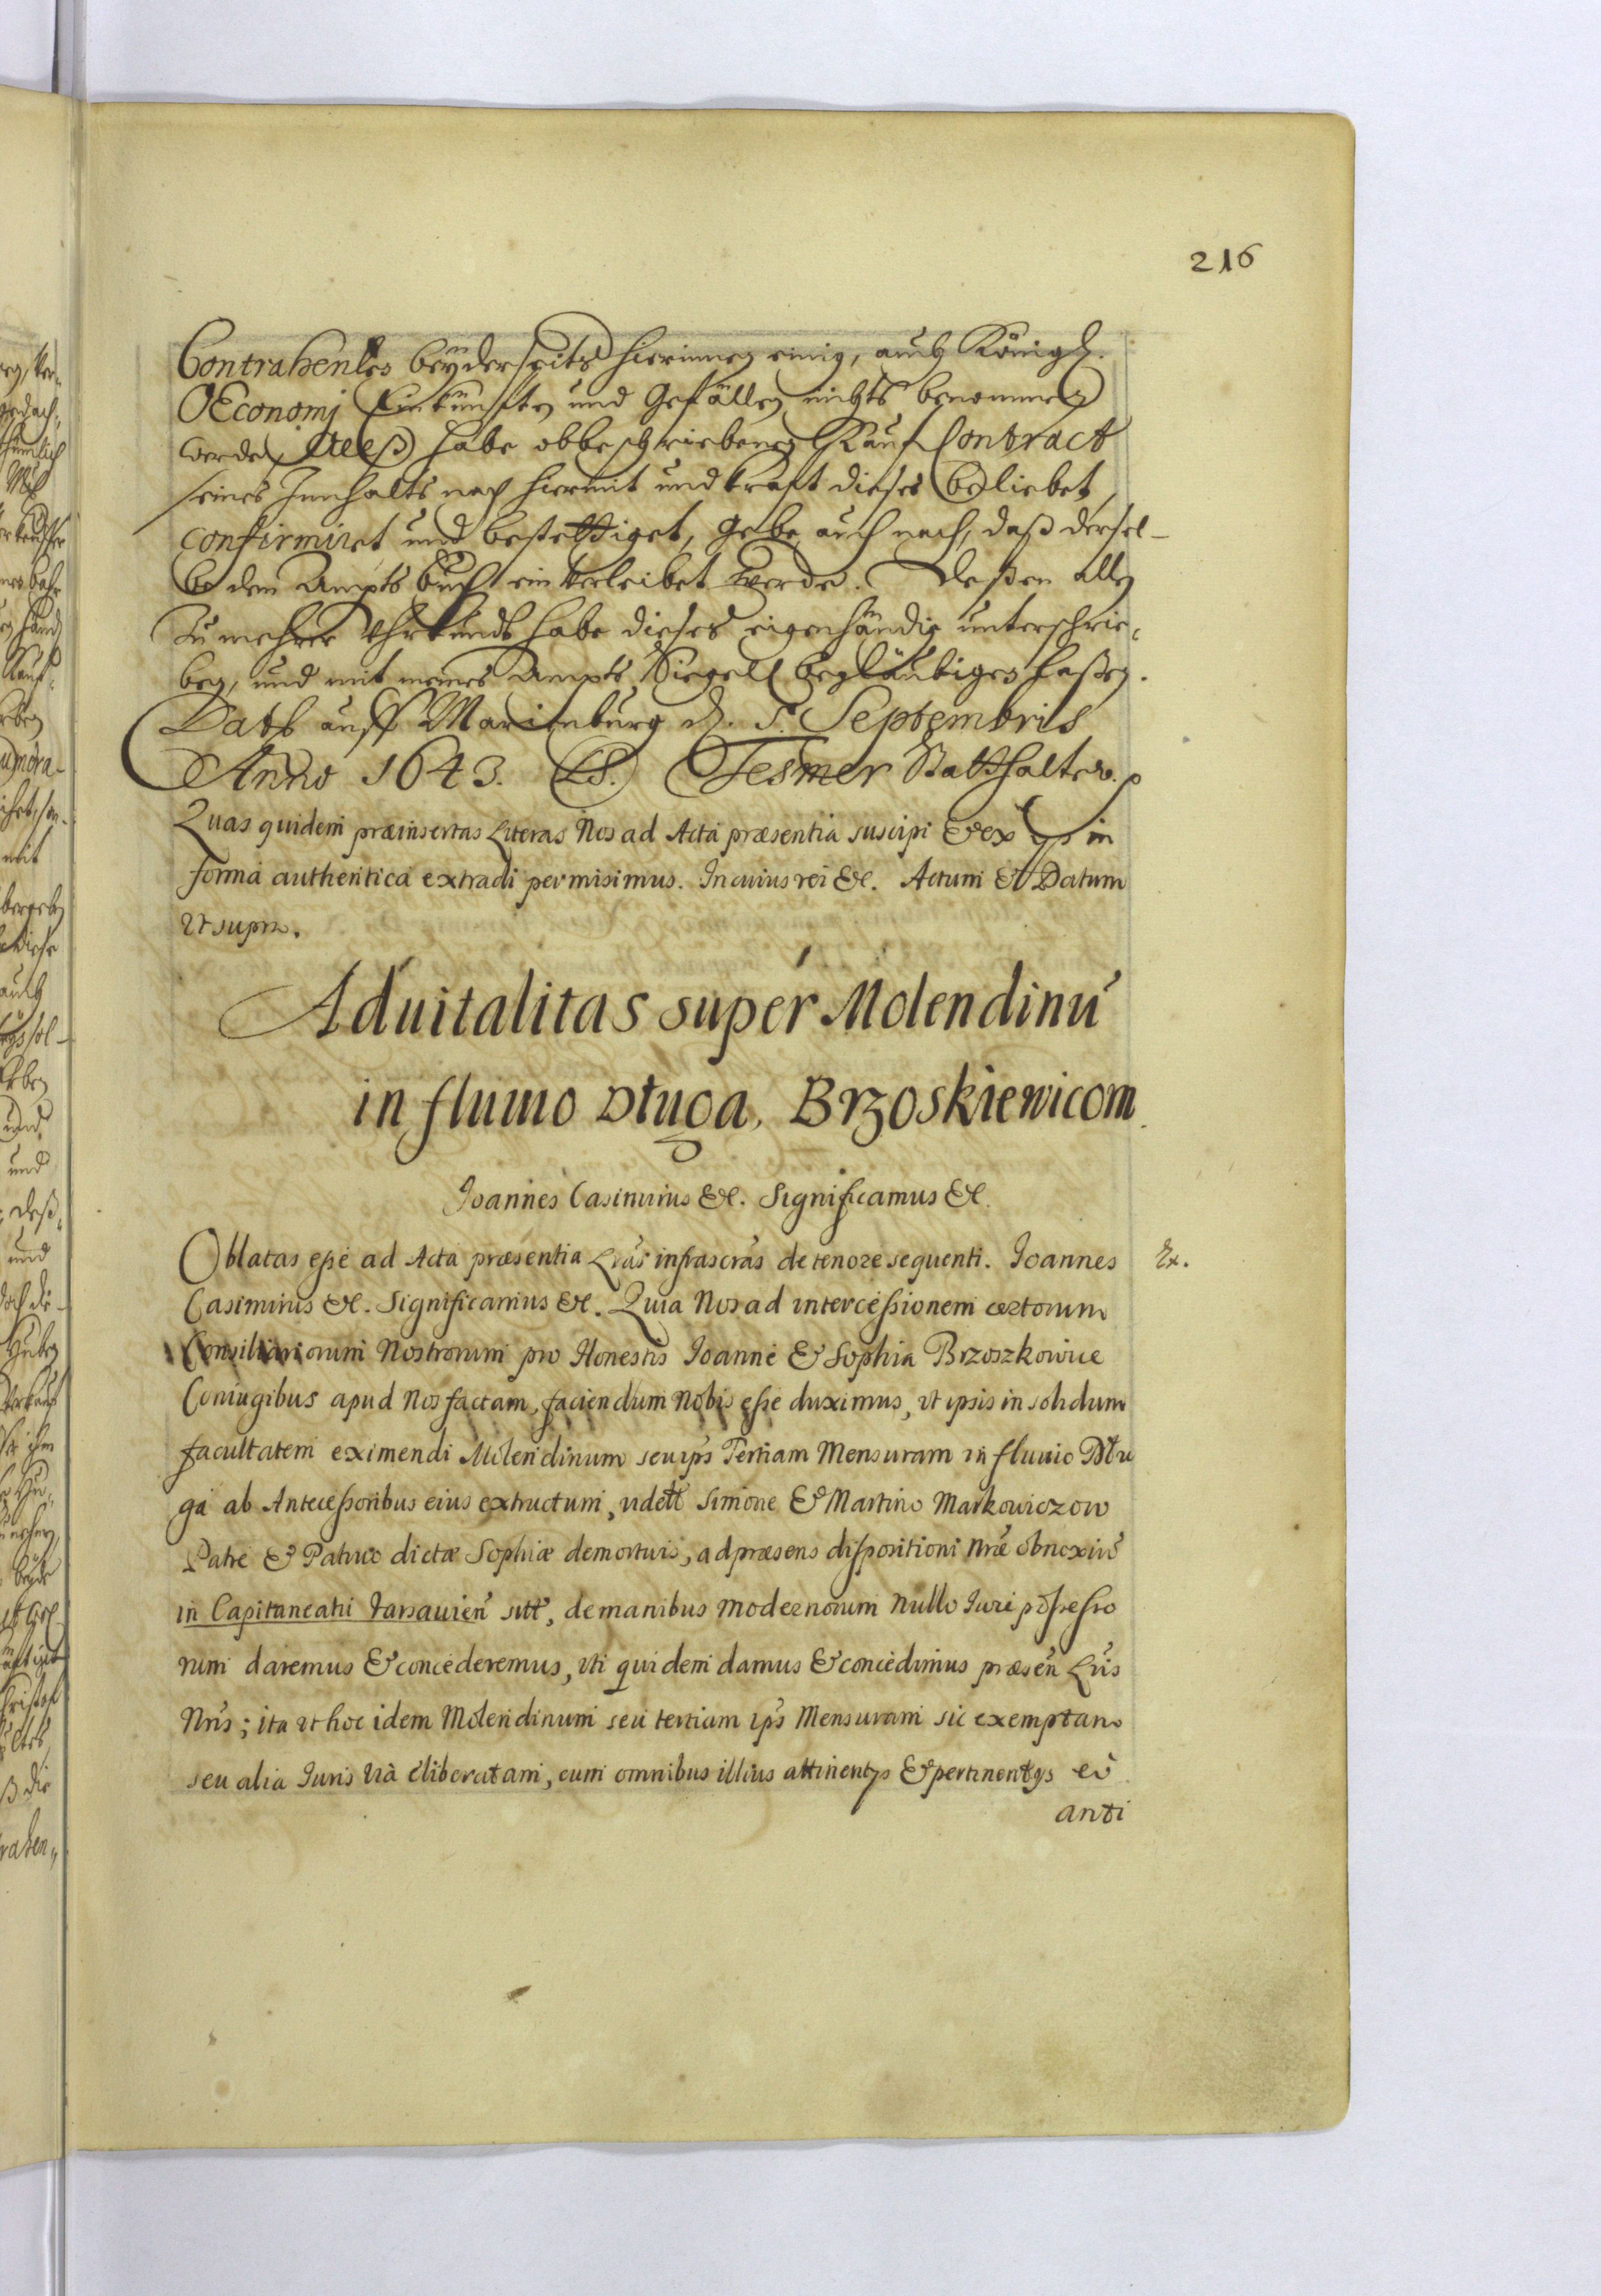 216
Contrahentes beyderseits hierinnen einig, auch Königl.
OEconomj Einkünfften und Gefällen nichts benommen
werde, Alß habe obbeschriebenen Kauf Contract
seines Innhalts nach hiermit und krafft dieses beliebet,
confirmiret und bestettiget, Gebe auch nach, daß dersel-
be dem Ampts Buch einverleibet werde. Deßen allen
Zu mehrer Uhrkundt habe dieses eigenhändig unterschrie-
ben, und mit meines Ampts Siegell beglaubigen laßen.
Datt auff Marienburg d. 5. Septembris
Anno 1643. LS. Tesmer Statthalter.
Quas quidem præinsertas Literas Nos ad Acta præsentia suscipi & ex ijs in
forma authentica extradi permisimus. In cuius rei &c. Actum & Datum
ut supra.
Aduitalitas super Molendinũ
in fluuio Długa, Brzoskiewicom
Ioannes Casimirus &c. Significamus &c.
Oblatas esse ad Acta præsentia Lrãs infrascrãs de tenore sequenti. Ioannes
Ex.
Casimirus &c. Significamus &c. Quia Nos ad intercessionem certorum
Consiliariorum Nostrorum pro Honestis Ioanne & Sophia Brzoszkowice
Coniugibus apud Nos factam, faciendum Nobis esse duximus, ut ipsis in solidum
facultatem eximendi Molendinum seu ips Tertiam Mensuram in fluuio Dłu
ga ab Antecessoribus eius extructum, vidett Simone & Martino Markowiczow
Patre & Patruo dictæ Sophiæ demortuis, ad præsens dispositioni Nrẽ obnoxiũ
in Capitaneatu Varsauieñ sitt, de manibus modernorum Nullo Iure possesso
rum daremus & concederemus, uti quidem damus & concedimus præseñ Lris
Nris; ita ut hoc idem Molendinum seu tertiam ips Mensuram sic exemptam
seu alia Iuris Via eliberatam, cum omnibus illius attinentijs & pertinentijs eò
anti